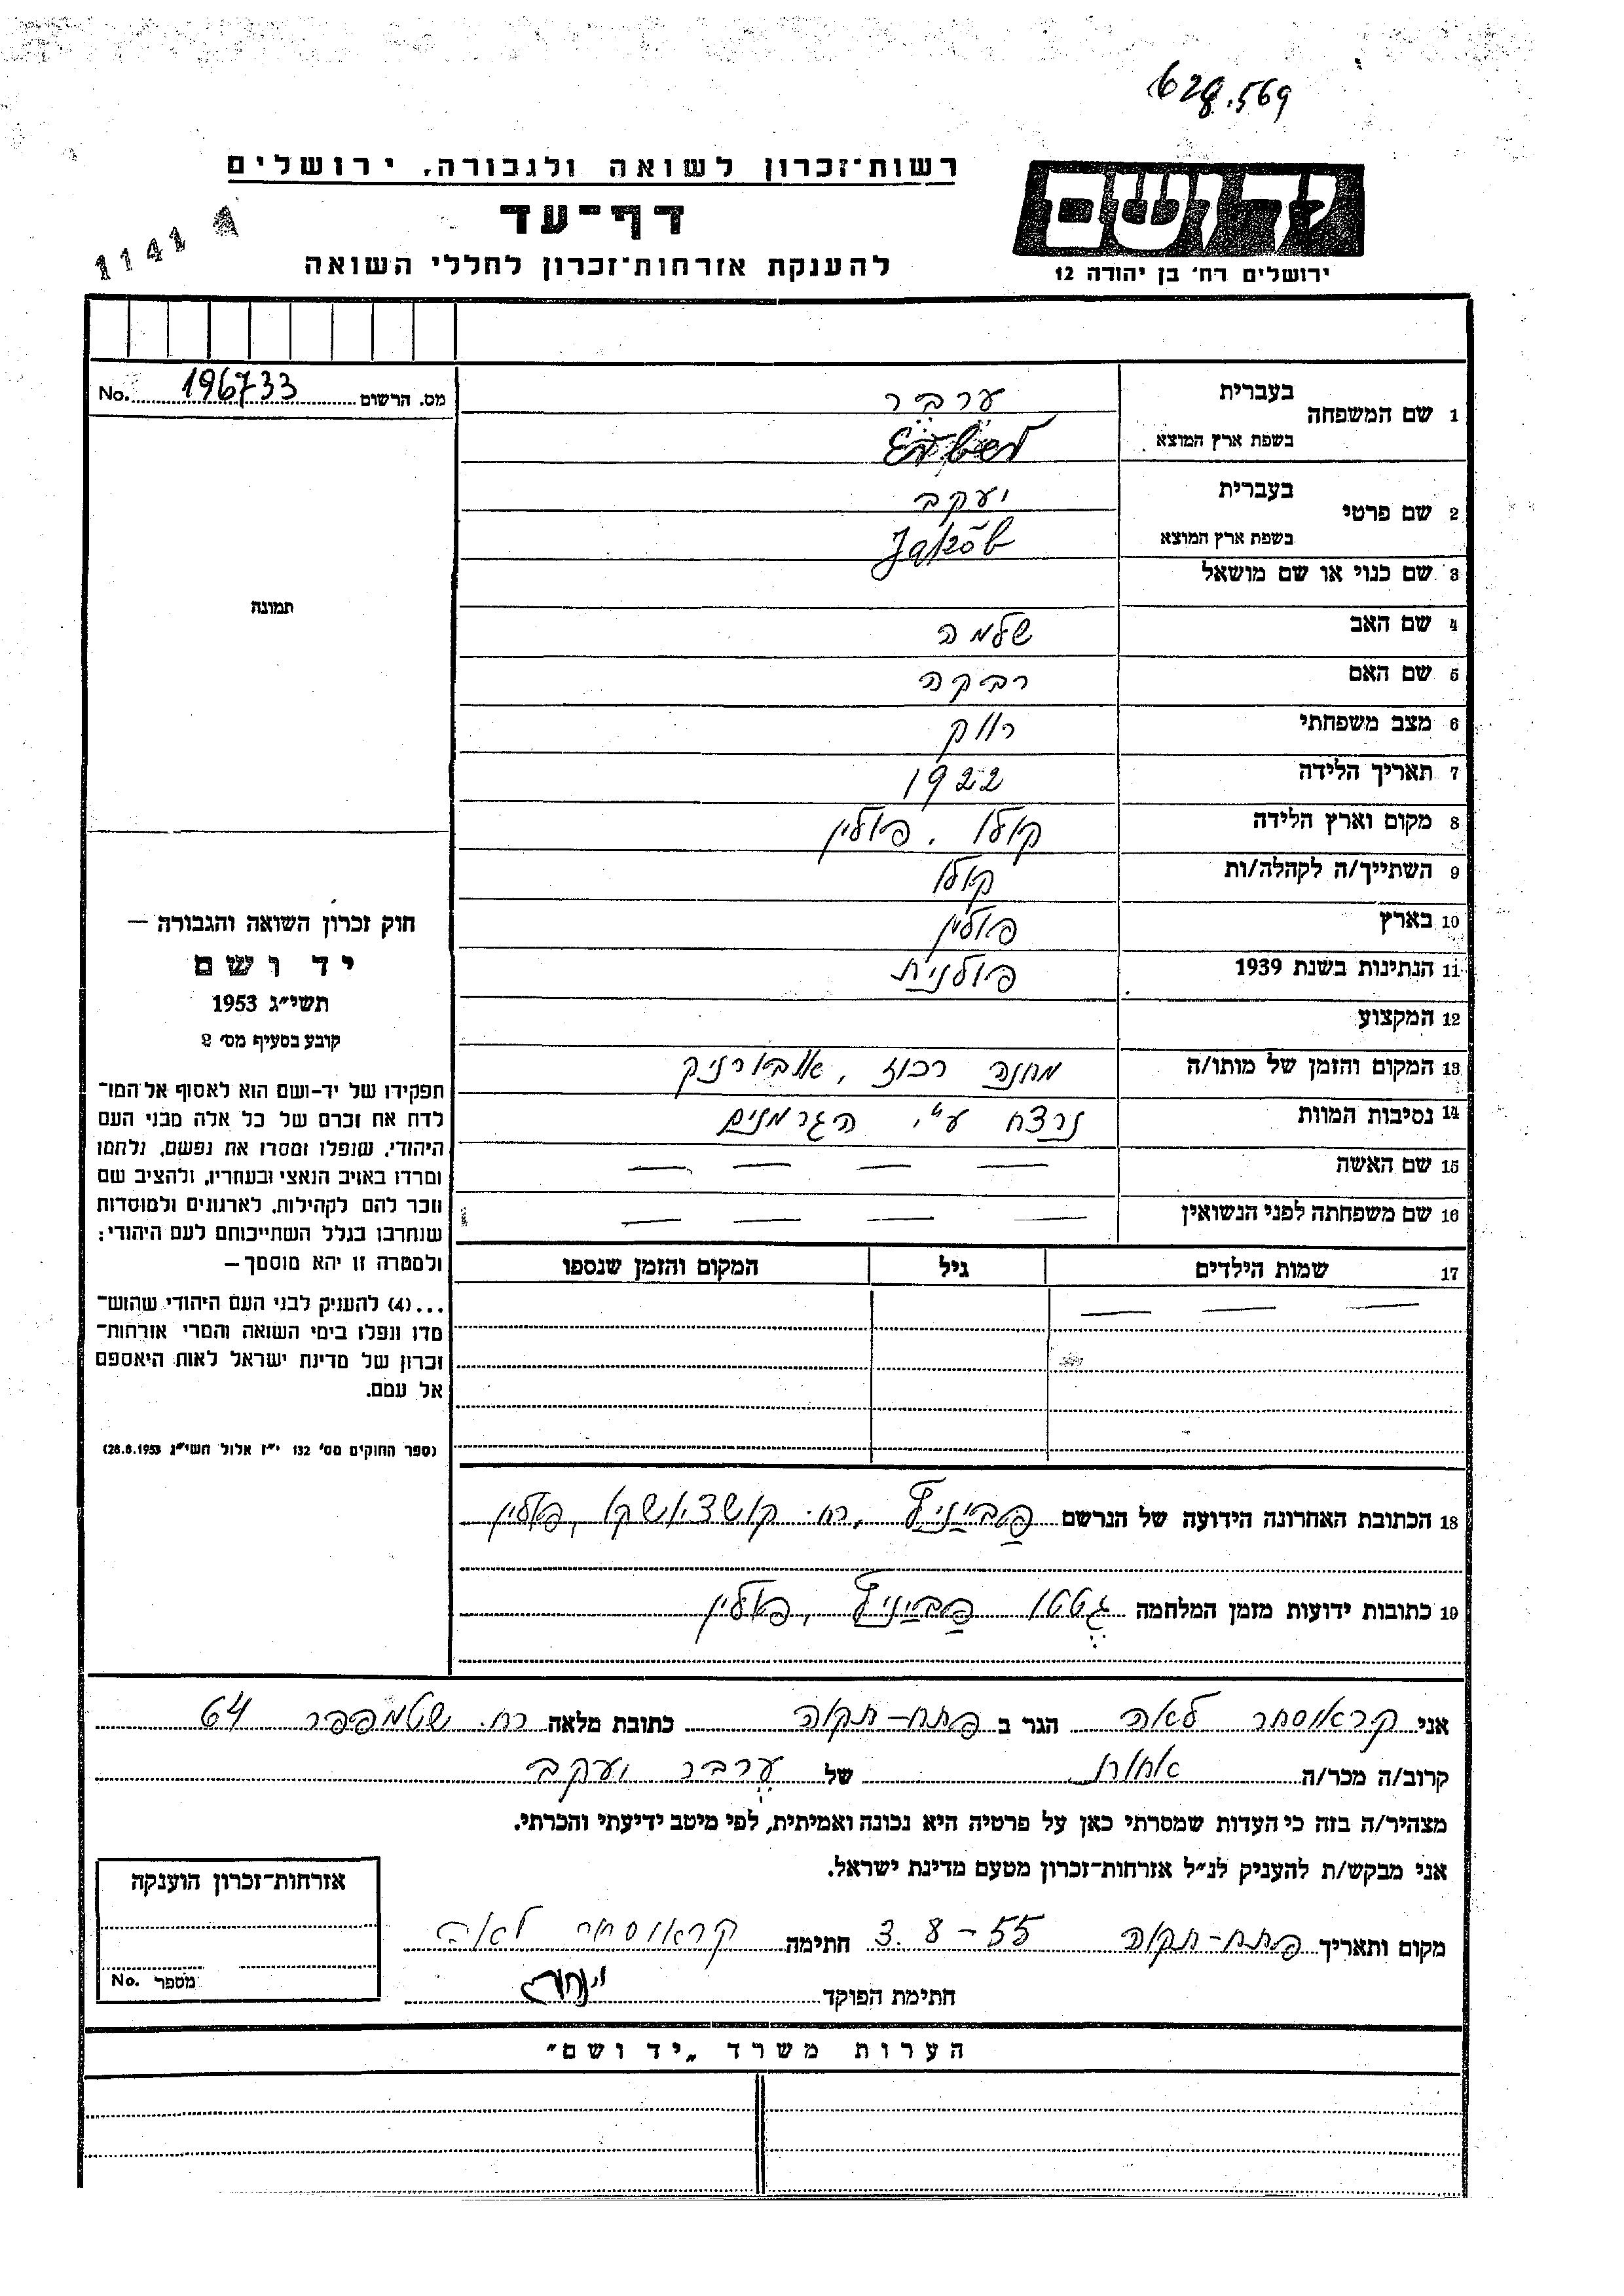 628.569
רשות־זכרון לשואה ולגבורה, ירושלים
יד ושם
דף־עד
1141
להענקת אזרחות־זכרון לחללי השואה
ירושלים רח׳ בן יהודה 12
מס. הרשום 196733 No.
1 שם המשפחה
בעברית ערבר
בשפת ארץ המוצא
2 שם פרטי
בעברית יעקב
בשפת ארץ המוצא Jakób
3 שם כנוי או שם מושאל
4 שם האב שלמה
5 שם האם רבקה
6 מצב משפחתי רווק
7 תאריך הלידה 1922
8 מקום וארץ הלידה קולו, פולין
9 השתייך/ה לקהלה/ות קולו
10 בארץ פולין
11 הנתינות בשנת 1939 פולנית
12 המקצוע
13 המקום והזמן של מותו/ה מחנה רכוז,
14 נסיבות המוות נרצח ע"י הגרמנים
15 שם האשה — — — —
16 שם משפחתה לפני הנשואין — — — —
17 שמות הילדים גיל המקום והזמן שנספו
— — —
תמונה
חוק זכרון השואה והגבורה —
יד ושם
תשי״ג 1953
קובע בסעיף מס׳ 2
תפקידו של יד־ושם הוא לאסוף אל המו־
לדת את זכרם של כל אלה מבני העם
היהודי, שנפלו ומסרו את נפשם, נלחמו
ומרדו באויב הנאצי ובעוזריו, ולהציב שם
וזכר להם לקהילות, לארגונים ולמוסדות
שנחרבו בגלל השתייכותם לעם היהודי;
ולמטרה זו יהא מוסמך —
...(4) להעניק לבני העם היהודי שהוש־
מדו ונפלו בימי השואה והמרי אזרחות־
זכרון של מדינת ישראל לאות היאספם
אל עמם.
(ספר החוקים מס׳ 132 י״ז אלול תשי״ג 28.8.1953)
18 הכתובת האחרונה הידועה של הנרשם פביניץ, רח. קושציושקו, פולין
19 כתובות ידועות מזמן המלחמה גטטו פביניץ, פולין
אני קראוסהר לאה הגר ב פתח-תקוה כתובת מלאה רח. שטמפפר 64
קרוב/ה מכר/ה אחות של ערבר יעקב
מצהיר/ה בזה כי העדות שמסרתי כאן על פרטיה היא נכונה ואמיתית, לפי מיטב ידיעתי והכרתי.
אני מבקש/ת להעניק לנ״ל אזרחות־זכרון מטעם מדינת ישראל.
מקום ותאריך פתח-תקוה 3.8-55 חתימה קראוסהר לאה
חתימת הפוקד
אזרחות־זכרון הוענקה
מספר No.
הערות משרד „יד ושם״